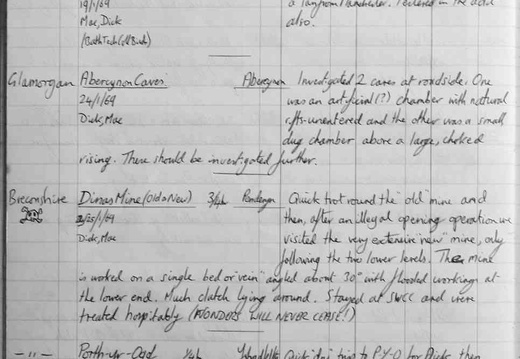 19/1/69
Mac, Dick also.
(BathTechCollBath)
Glamorgan Abercynon Caves. Abercynon Investigated 2 caves at roadside. One
24/1/69 was an artificial(?) chamber with natural
Dick, Mac rifts-unentered and the other was a small
dug chamber above a large, choked
rising. These should be investigated further.
Breconshire Dinas Mine (Old & New) 3/4h Penderyn Quick trot round the "old" mine and
25/1/69 then, after an illegal opening operation we
Dick, Mac visited the very extensive "new" mine, only
following the two lower levels. The mine
is worked on a single bed or "vein" angled about 30° with flooded workings at
the lower end. Much clatch lying around. Stayed at SWCC and were
treated hospitably (WONDERS WILL NEVER CEASE!)
-"- Porth-yr-Ogof Quick trip to P.Y.O. for Dick, then